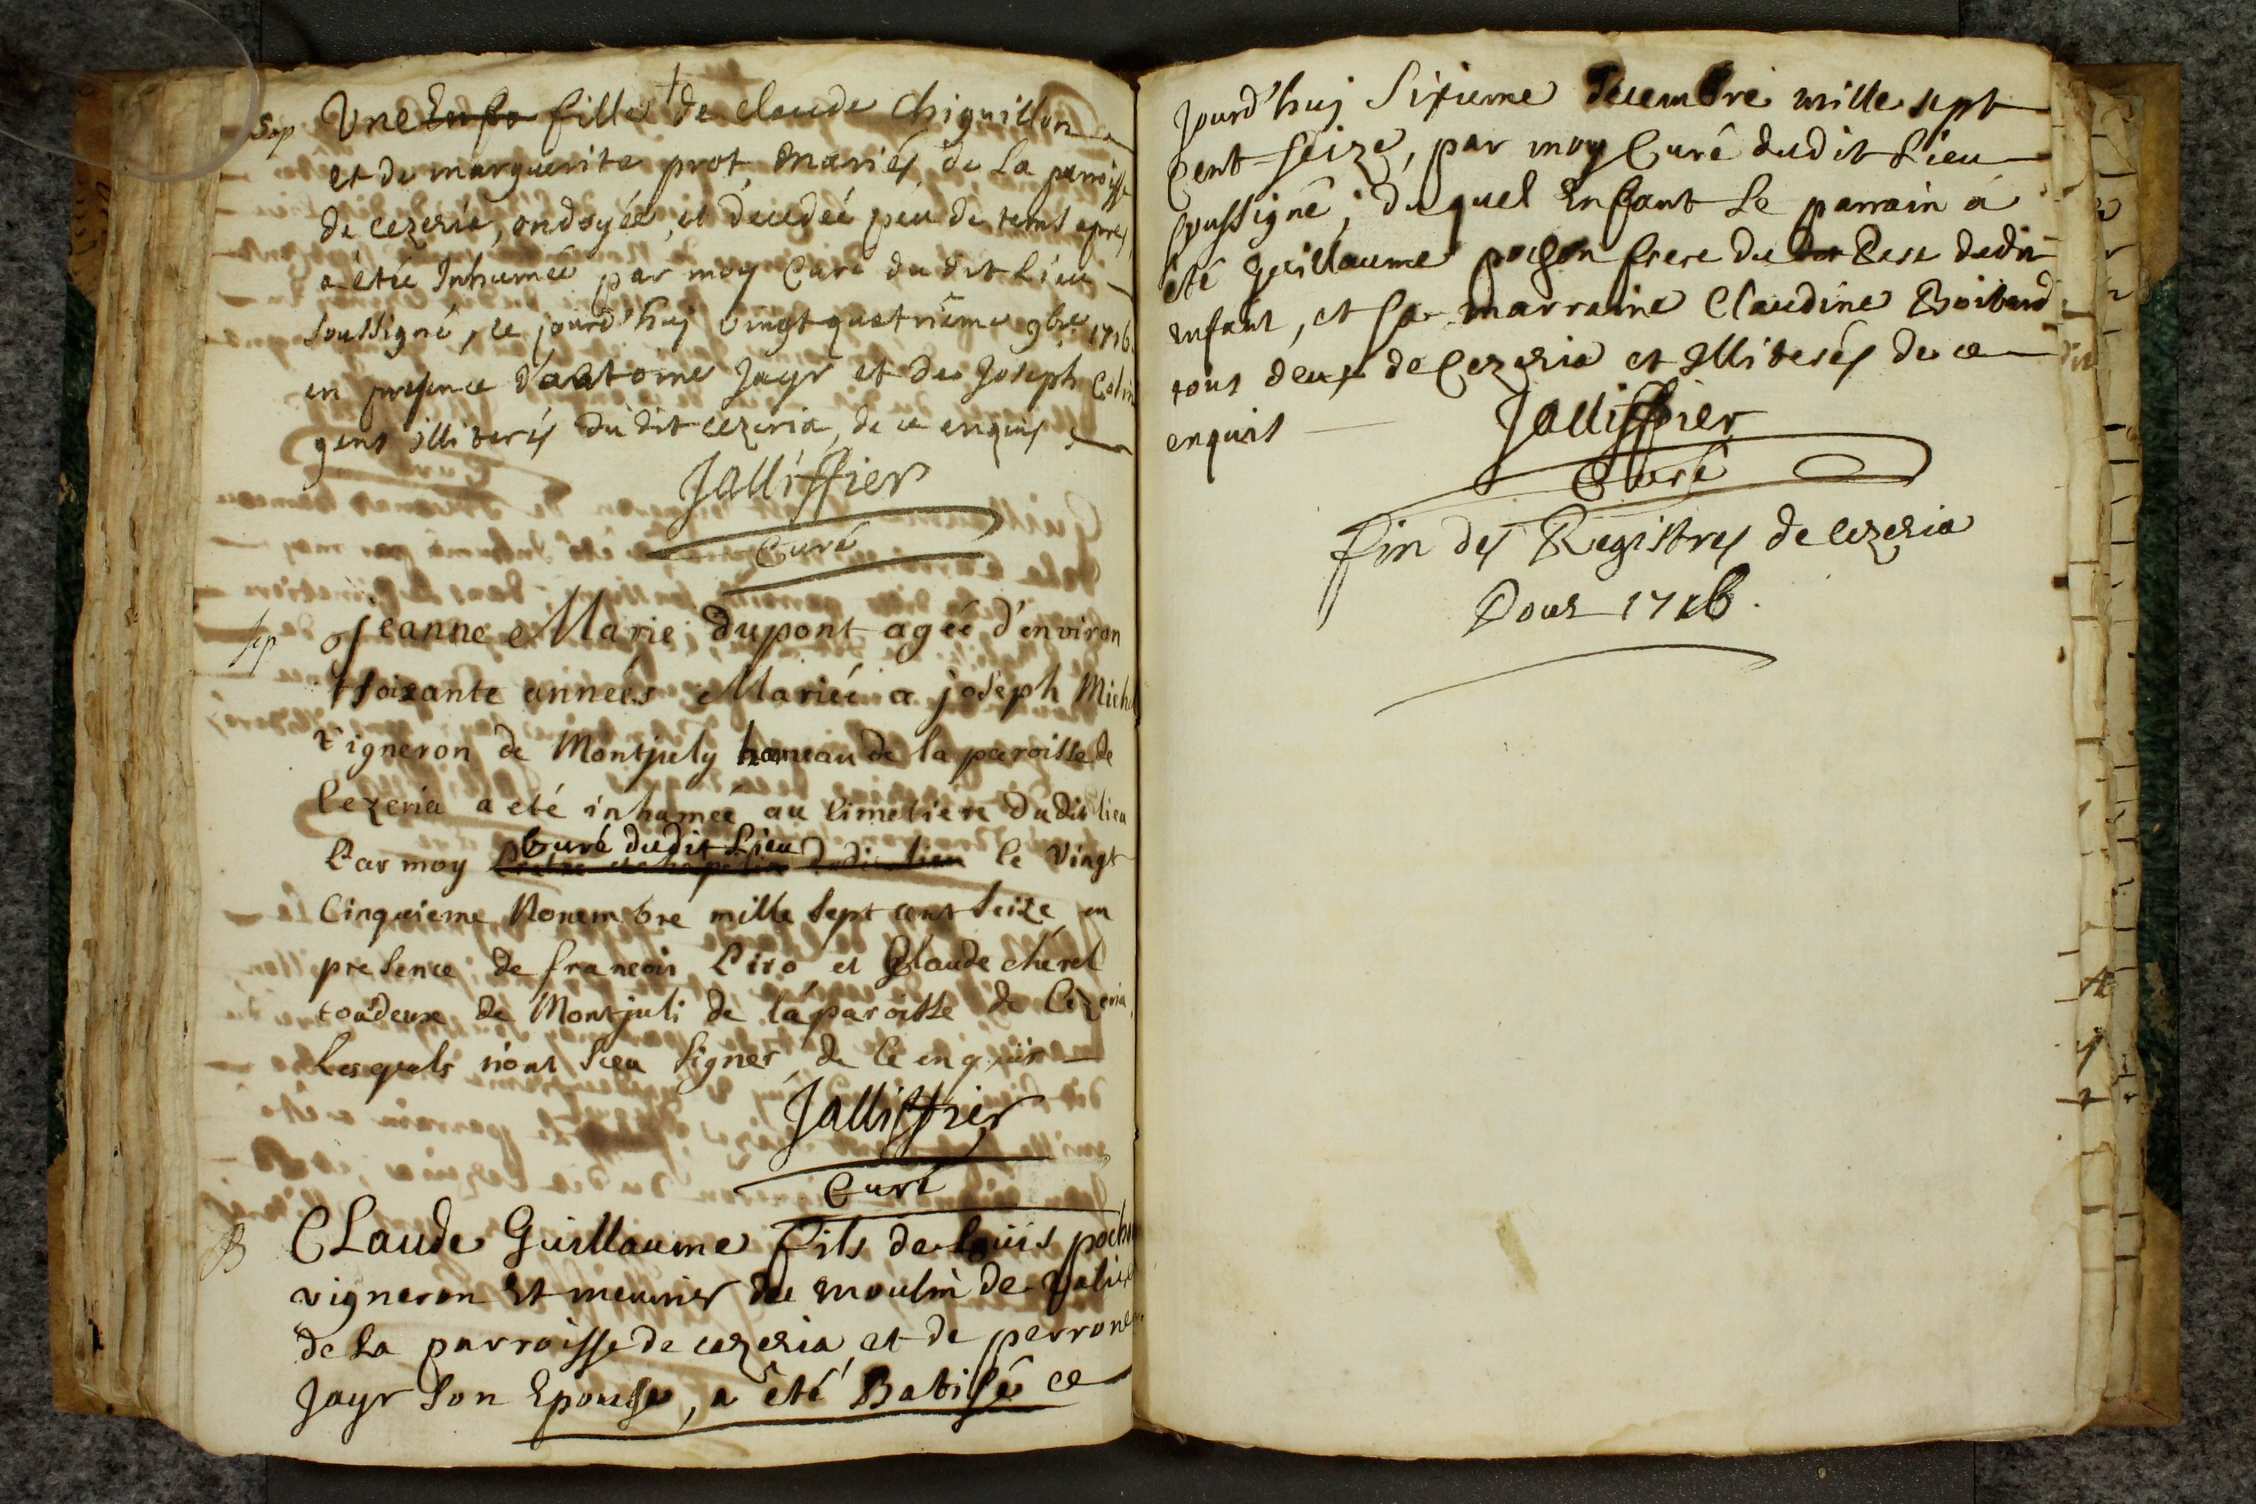 Sep Une Enfa fille de claude chiquillon
et de marguerite prot, mariés, de La parroisse
de cezeria, ondoyée, et decedeé peu de tems apres
a étée Inhumeé par moy Curé du dit Lieu
soussigné, ce jourd'huj vingt quatriéme 9bre 1716
en presence d'antoine Jayr et de Joseph Colin
gens illiterés du dit cezeria, de ce enquis
Jalliffier
Curé
sep Jeanne Marie dupont ageé d'environ
soixante années Marieé a joseph Michel
vigneron de Montjuly hameau de la paroisse de
Cezeria a eté inhumeé au Cimetiere dudit lieu
Curé dudit Lieu
Par moy dudit lieu le Vingt
Cinquieme Novembre mille sept cent seize en
presence de francois Piro et Claude chérel
tous deux de Montjuli de la paroisse de Cezeria
Lesquels n'ont sceu signer de ce enquis
Jalliffier
Curé
B CLaude Guillaume fils de Louis pochon
vigneron Et meunier du moulin de
de La parroisse de cezeria et de perrone
Jayr son Epouse, a été Batisé ce
jourd'huj Sixieme decembre mille sept
Cent Seize, par moy Curé dudit Lieu
soussigné; duquel Enfant Le parrain a
été guillaume pochon frere du Pere dudit
enfant, et sa marraine Claudine Boibard
tous deux de Cezeria et Illiterés de ce
enquis
Jalliffier
Curé
fin des Registres de cezeria
Pour 1716.